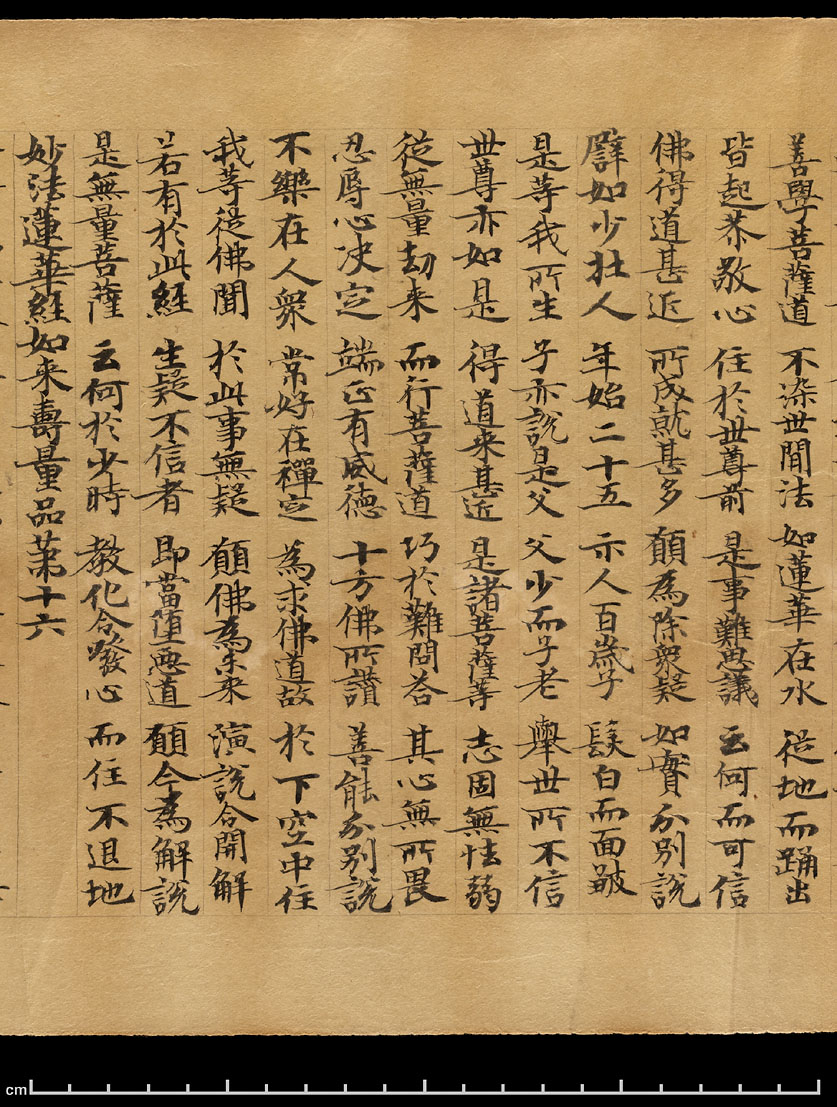 善學菩薩道 不染世間法 如蓮華在水 從地而踊出
皆起恭敬心 住於世尊前 是事難思議 云何而可信
佛得道甚近 所成就甚多 願為除衆疑 如實分別說
譬如少壯人 年始二十五 示人百歲子 髮白而面皺
是等我所生 子亦說是父 父少而子老 舉世所不信
世尊亦如是 得道来甚近 是諸菩薩等 志固無怯弱
從無量劫来 而行菩薩道 巧於難問荅 其心無所畏
忍辱心決定 端正有威德 十方佛所讚 善能分別說
不樂在人衆 常好在禪定 為求佛道故 於下空中住
我等從佛聞 於此事無疑 願佛為未来 演說令開解
若有於此經 生疑不信者 即當墮惡道 願今為解說
是無量菩薩 云何於少時 教化令發心 而住不退地
妙法蓮華經如来壽量品第十六